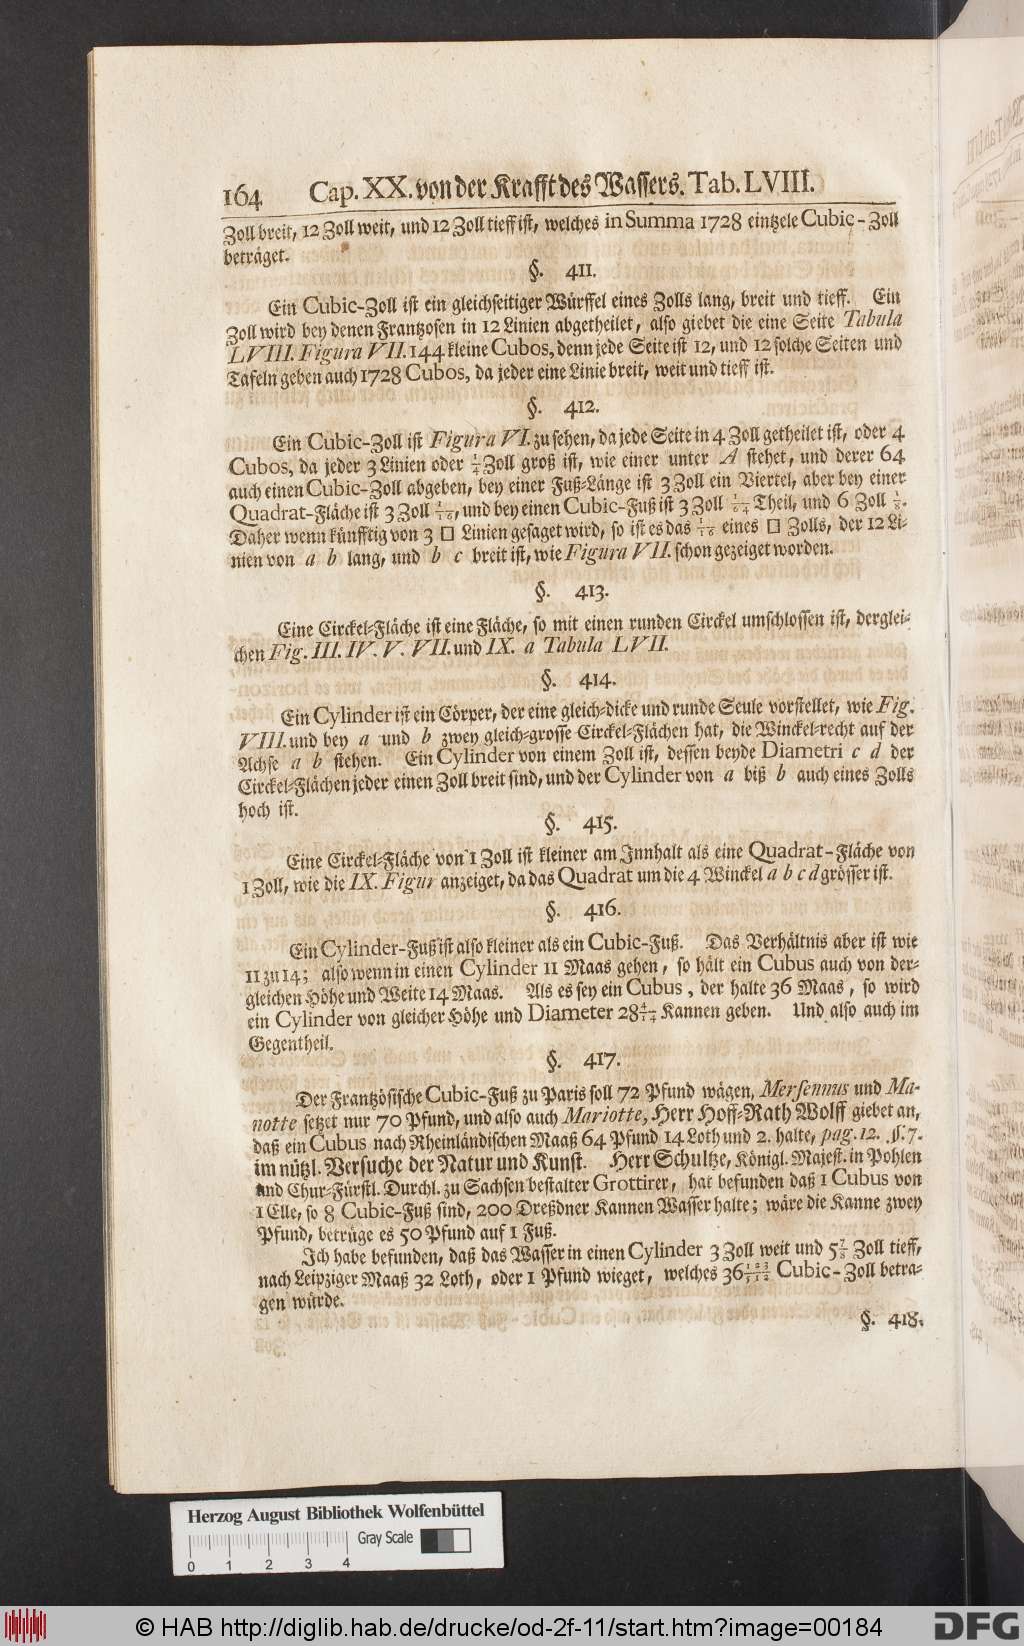 164 Cap. XX. von der Krafft des Wassers. Tab. LVIII.
Zoll breit, 12 Zoll weit, und 12 Zoll tieff ist, welches in Summa 1728 eintzele Cubic-Zoll
beträget.
§. 411.
Ein Cubic-Zoll ist ein gleichseitiger Würffel eines Zolls lang, breit und tieff. Ein
Zoll wird bey denen Frantzosen in 12 Linien abgetheilet, also giebet die eine Seite Tabula
LVIII. Figura VII. 144 kleine Cubos, denn jede Seite ist 12, und 12 solche Seiten und
Tafeln geben auch 1728 Cubos, da jeder eine Linie breit, weit und tieff ist.
§. 412.
Ein Cubic-Zoll ist Figura VI. zu sehen, da jede Seite in 4 Zoll getheilet ist, oder 4
Cubos, da jeder 3 Linien oder 1/4 Zoll groß ist, wie einer unter A stehet, und derer 64
auch einen Cubic-Zoll abgeben, bey einer Fuß-Länge ist 3 Zoll ein Viertel, aber bey einer
Quadrat-Fläche ist 3 Zoll 1/16, und bey einen Cubic-Fuß ist 3 Zoll 1/64 Theil, und 6 Zoll 1/8.
Daher wenn künfftig von 3 □ Linien gesaget wird, so ist es das 1/16 eines □ Zolls, der 12 Li-
nien von a b lang, und b c breit ist, wie Figura VII. schon gezeiget worden.
§. 413.
Eine Circkel-Fläche ist eine Fläche, so mit einen runden Circkel umschlossen ist, derglei-
chen Fig. III. IV. V. VII. und IX. a Tabula LVII.
§. 414.
Ein Cylinder ist ein Cörper, der eine gleich-dicke und runde Seule vorstellet, wie Fig.
VIII. und bey a und b zwey gleich-grosse Circkel-Flächen hat, die Winckel-recht auf der
Achse a b stehen. Ein Cylinder von einem Zoll ist, dessen beyde Diametri c d der
Circkel-Flächen jeder einen Zoll breit sind, und der Cylinder von a biß b auch eines Zolls
hoch ist.
§. 415.
Eine Circkel-Fläche von 1 Zoll ist kleiner am Innhalt als eine Quadrat-Fläche von
1 Zoll, wie die IX. Figur anzeiget, da das Quadrat um die 4 Winckel a b c d grösser ist.
§. 416.
Ein Cylinder-Fuß ist also kleiner als ein Cubic-Fuß. Das Verhältnis aber ist wie
11 zu 14; also wenn in einen Cylinder 11 Maas gehen, so hält ein Cubus auch von der-
gleichen Höhe und Weite 14 Maas. Als es sey ein Cubus, der halte 36 Maas, so wird
ein Cylinder von gleicher Höhe und Diameter 28 4/14 Kannen geben. Und also auch im
Gegentheil.
§. 417.
Der Frantzösische Cubic-Fuß zu Paris soll 72 Pfund wägen, Mersennus und Ma-
notte setzet nur 70 Pfund, und also auch Mariotte, Herr Hoff-Rath Wolff giebet an,
daß ein Cubus nach Rheinländischen Maaß 64 Pfund 14 Loth und 2. halte, pag. 12. §. 7.
im nützl. Versuche der Natur und Kunst. Herr Schultze, Königl. Majest. in Pohlen
und Chur-Fürstl. Durchl. zu Sachsen bestalter Grottirer, hat befunden daß 1 Cubus von
1 Elle, so 8 Cubic-Fuß sind, 200 Dreßdner Kannen Wasser halte; wäre die Kanne zwey
Pfund, betrüge es 50 Pfund auf 1 Fuß.
Ich habe befunden, daß das Wasser in einen Cylinder 3 Zoll weit und 5 7/8 Zoll tieff,
nach Leipziger Maaß 32 Loth, oder 1 Pfund wieget, welches 36 Cubic-Zoll betra-
gen würde.
§. 418.
Herzog August Bibliothek Wolfenbüttel
Gray Scale
0 1 2 3 4
© HAB http://diglib.hab.de/drucke/od-2f-11/start.htm?image=00184
DFG